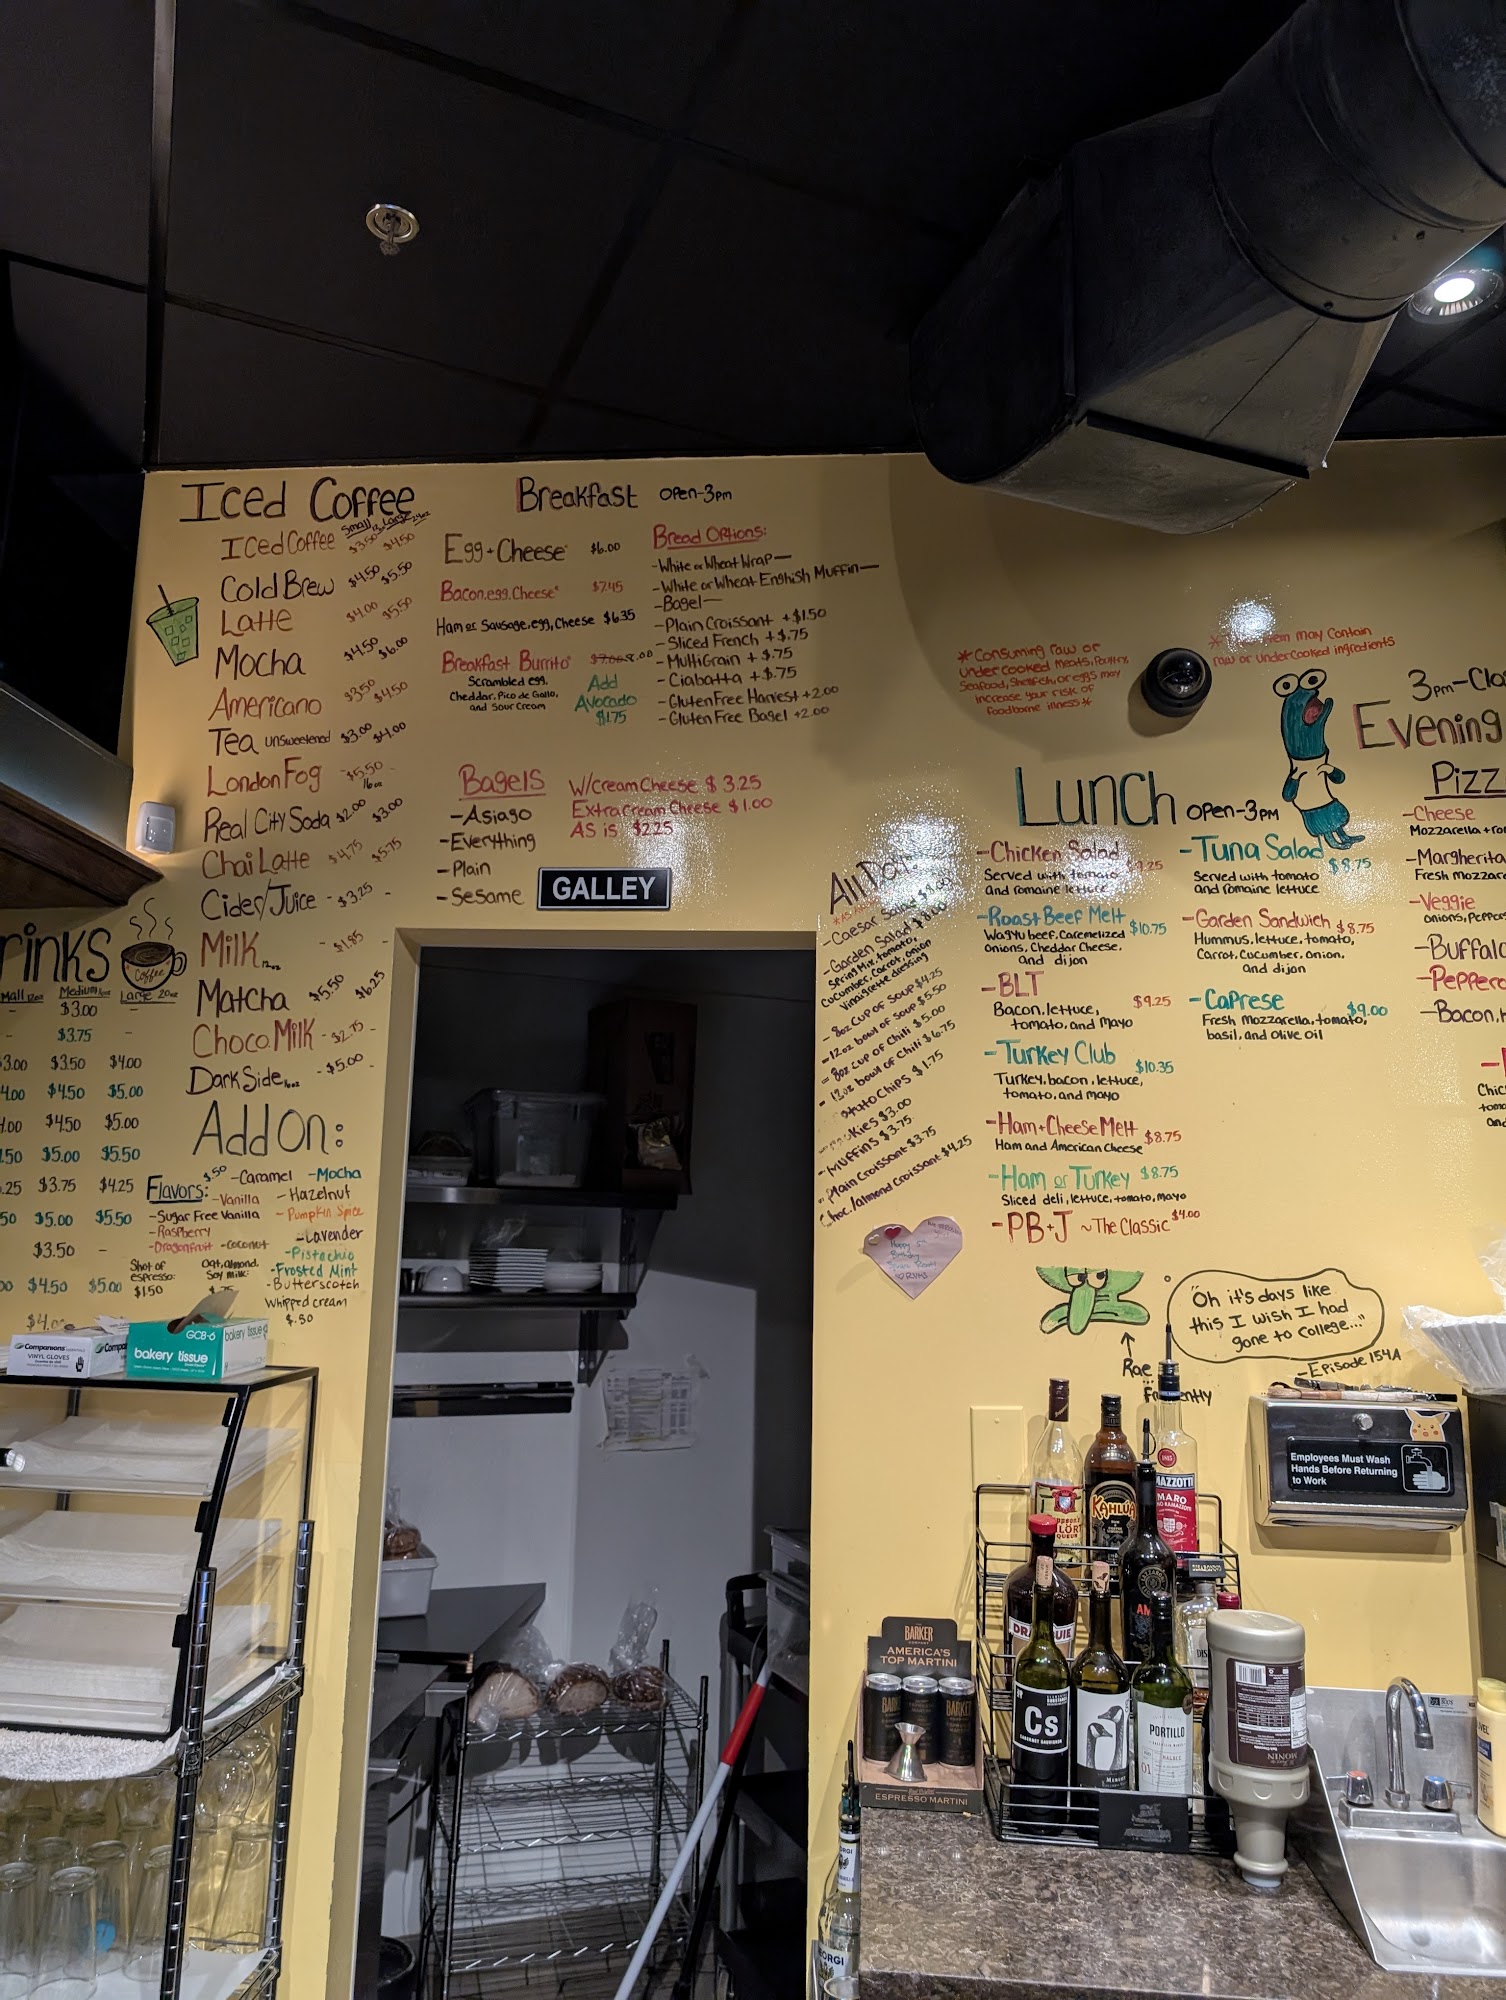 Iced Coffee
Small 12oz Large 24oz
Iced Coffee $3.50 $4.50
Cold Brew $4.50 $5.50
Latte $4.00 $5.50
Mocha $4.50 $6.00
Americano $3.50 $4.50
Tea unsweetened $3.00 $4.00
London Fog - $5.50 -
16oz
Real City Soda $2.00 $3.00
Chai Latte $4.75 $5.75
Cider/Juice - $3.25 -
Milk 12oz - $1.85 -
Matcha $5.50 $6.25
Choco. Milk - $2.75 -
Dark Side 16oz - $5.00 -
Add On:
Flavors: $.50
-Vanilla
-Sugar Free Vanilla
-Raspberry
-Dragonfruit -Coconut
-Caramel -Mocha
-Hazelnut
-Pumpkin Spice
-Lavender
-Pistachio
-Frosted Mint
-Butterscotch
Shot of
espresso:
$1.50
Oat, almond,
Soy milk:
Whipped cream
$.50
rinks
Coffee
mall 12oz Medium 16oz Large 20oz
- $3.00 -
$3.75
3.00 $3.50 $4.00
4.00 $4.50 $5.00
.00 $4.50 $5.00
.50 $5.00 $5.50
.25 $3.75 $4.25
50 $5.00 $5.50
$3.50 -
00 $4.50 $5.00
Breakfast open-3pm
Egg + Cheese* $6.00
Bacon, egg, Cheese* $7.45
Ham or Sausage, egg, Cheese $6.35
Breakfast Burrito* $7.06 8.00
Scrambled egg,
Cheddar, Pico de Gallo,
and Sour Cream
Add
Avocado
$1.75
Bread Options:
-White or Wheat Wrap-
-White or Wheat English Muffin-
-Bagel-
-Plain Croissant +$1.50
-Sliced French +$.75
-MultiGrain +$.75
-Ciabatta +$.75
-Gluten Free Harvest +2.00
-Gluten Free Bagel +2.00
Bagels
-Asiago
-Everything
-Plain
-Sesame
W/cream Cheese $3.25
Extra cream Cheese $1.00
As is $2.25
GALLEY
All Day
-Caesar Salad $9.00
-Garden Salad $8.00
Spring Mix, tomato,
Cucumber, Carrot, onion
Vinaigrette dressing
-8oz cup of soup $4.25
-12oz bowl of soup $5.50
-8oz cup of Chili $5.00
-12oz bowl of Chili $6.75
otato Chips $1.75
okies $3.00
-Muffins $3.75
-Plain Croissant $3.75
Choc./almond Croissant $4.25
*Consuming raw or
undercooked meats, Poultry,
Seafood, Shellfish, or eggs may
increase your risk of
foodborne illness*
* Item may Contain
raw or undercooked ingredients
Lunch open-3pm
-Chicken Salad 9.25
Served with tomato
and romaine lettuce
-Roast Beef Melt $10.75
Wagyu beef, Caramelized
Onions, Cheddar Cheese,
and dijon
-BLT $9.25
Bacon, lettuce,
tomato, and mayo
-Turkey Club $10.35
Turkey, bacon, lettuce,
tomato, and mayo
-Ham + Cheese Melt $8.75
Ham and American Cheese
-Ham or Turkey $8.75
Sliced deli, lettuce, tomato, mayo
-PB+J ~The Classic $4.00
-Tuna Salad $8.75
Served with tomato
and romaine lettuce
-Garden Sandwich $8.75
Hummus, lettuce, tomato,
Carrot, Cucumber, Onion,
and dijon
-Caprese $9.00
Fresh Mozzarella, tomato,
basil, and olive oil
3pm-Clo
Evening
Pizz
-Cheese
Mozzarella + ro
-Margherita
Fresh mozzare
-Veggie
Onions, Pepper
-Buffalo
-Pepperc
-Bacon, H
Chic
toma
and
"Oh it's days like
this I wish I had
gone to college..."
-Episode 154A
Rae
Employees Must Wash
Hands Before Returning
to Work
Companions
VINYL GLOVES
GCB-6
bakery tissue
bakery tissue
BARKER
AMERICA'S
TOP MARTINI
ESPRESSO MARTINI
KAHLÚA
Cs
CABERNET SAUVIGNON
PORTILLO
MALBEC
01
MONIN